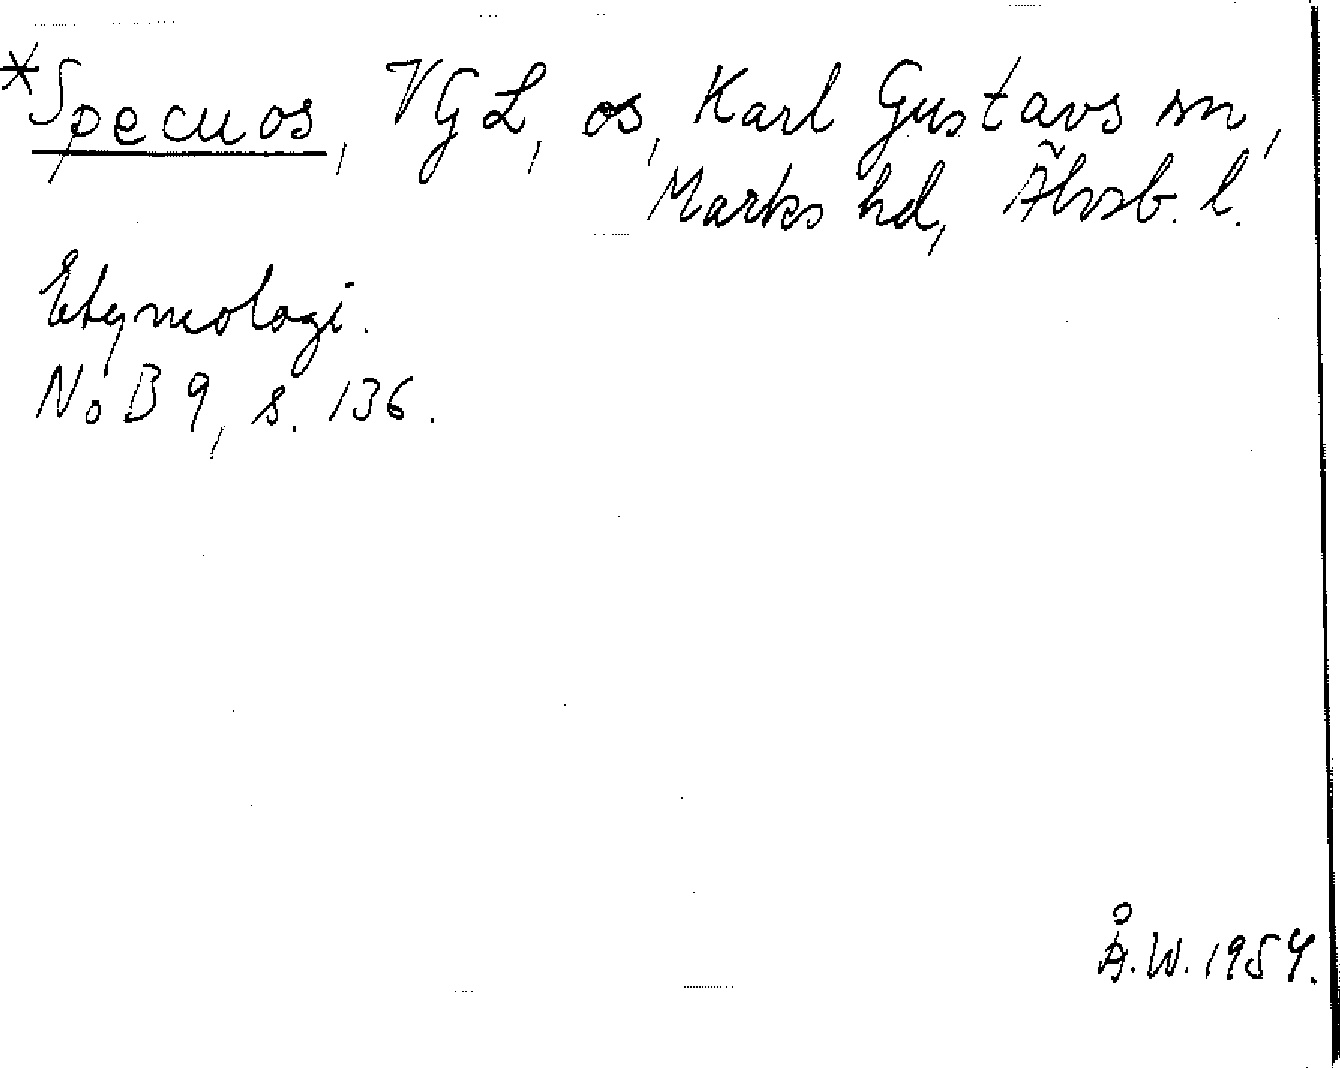 *Specuos, VGL, os, Karl Gustavs sn,
Marks hd, Älvsb. l.
Etymologi.
NoB 9, s. 136.
Å.W. 1954.